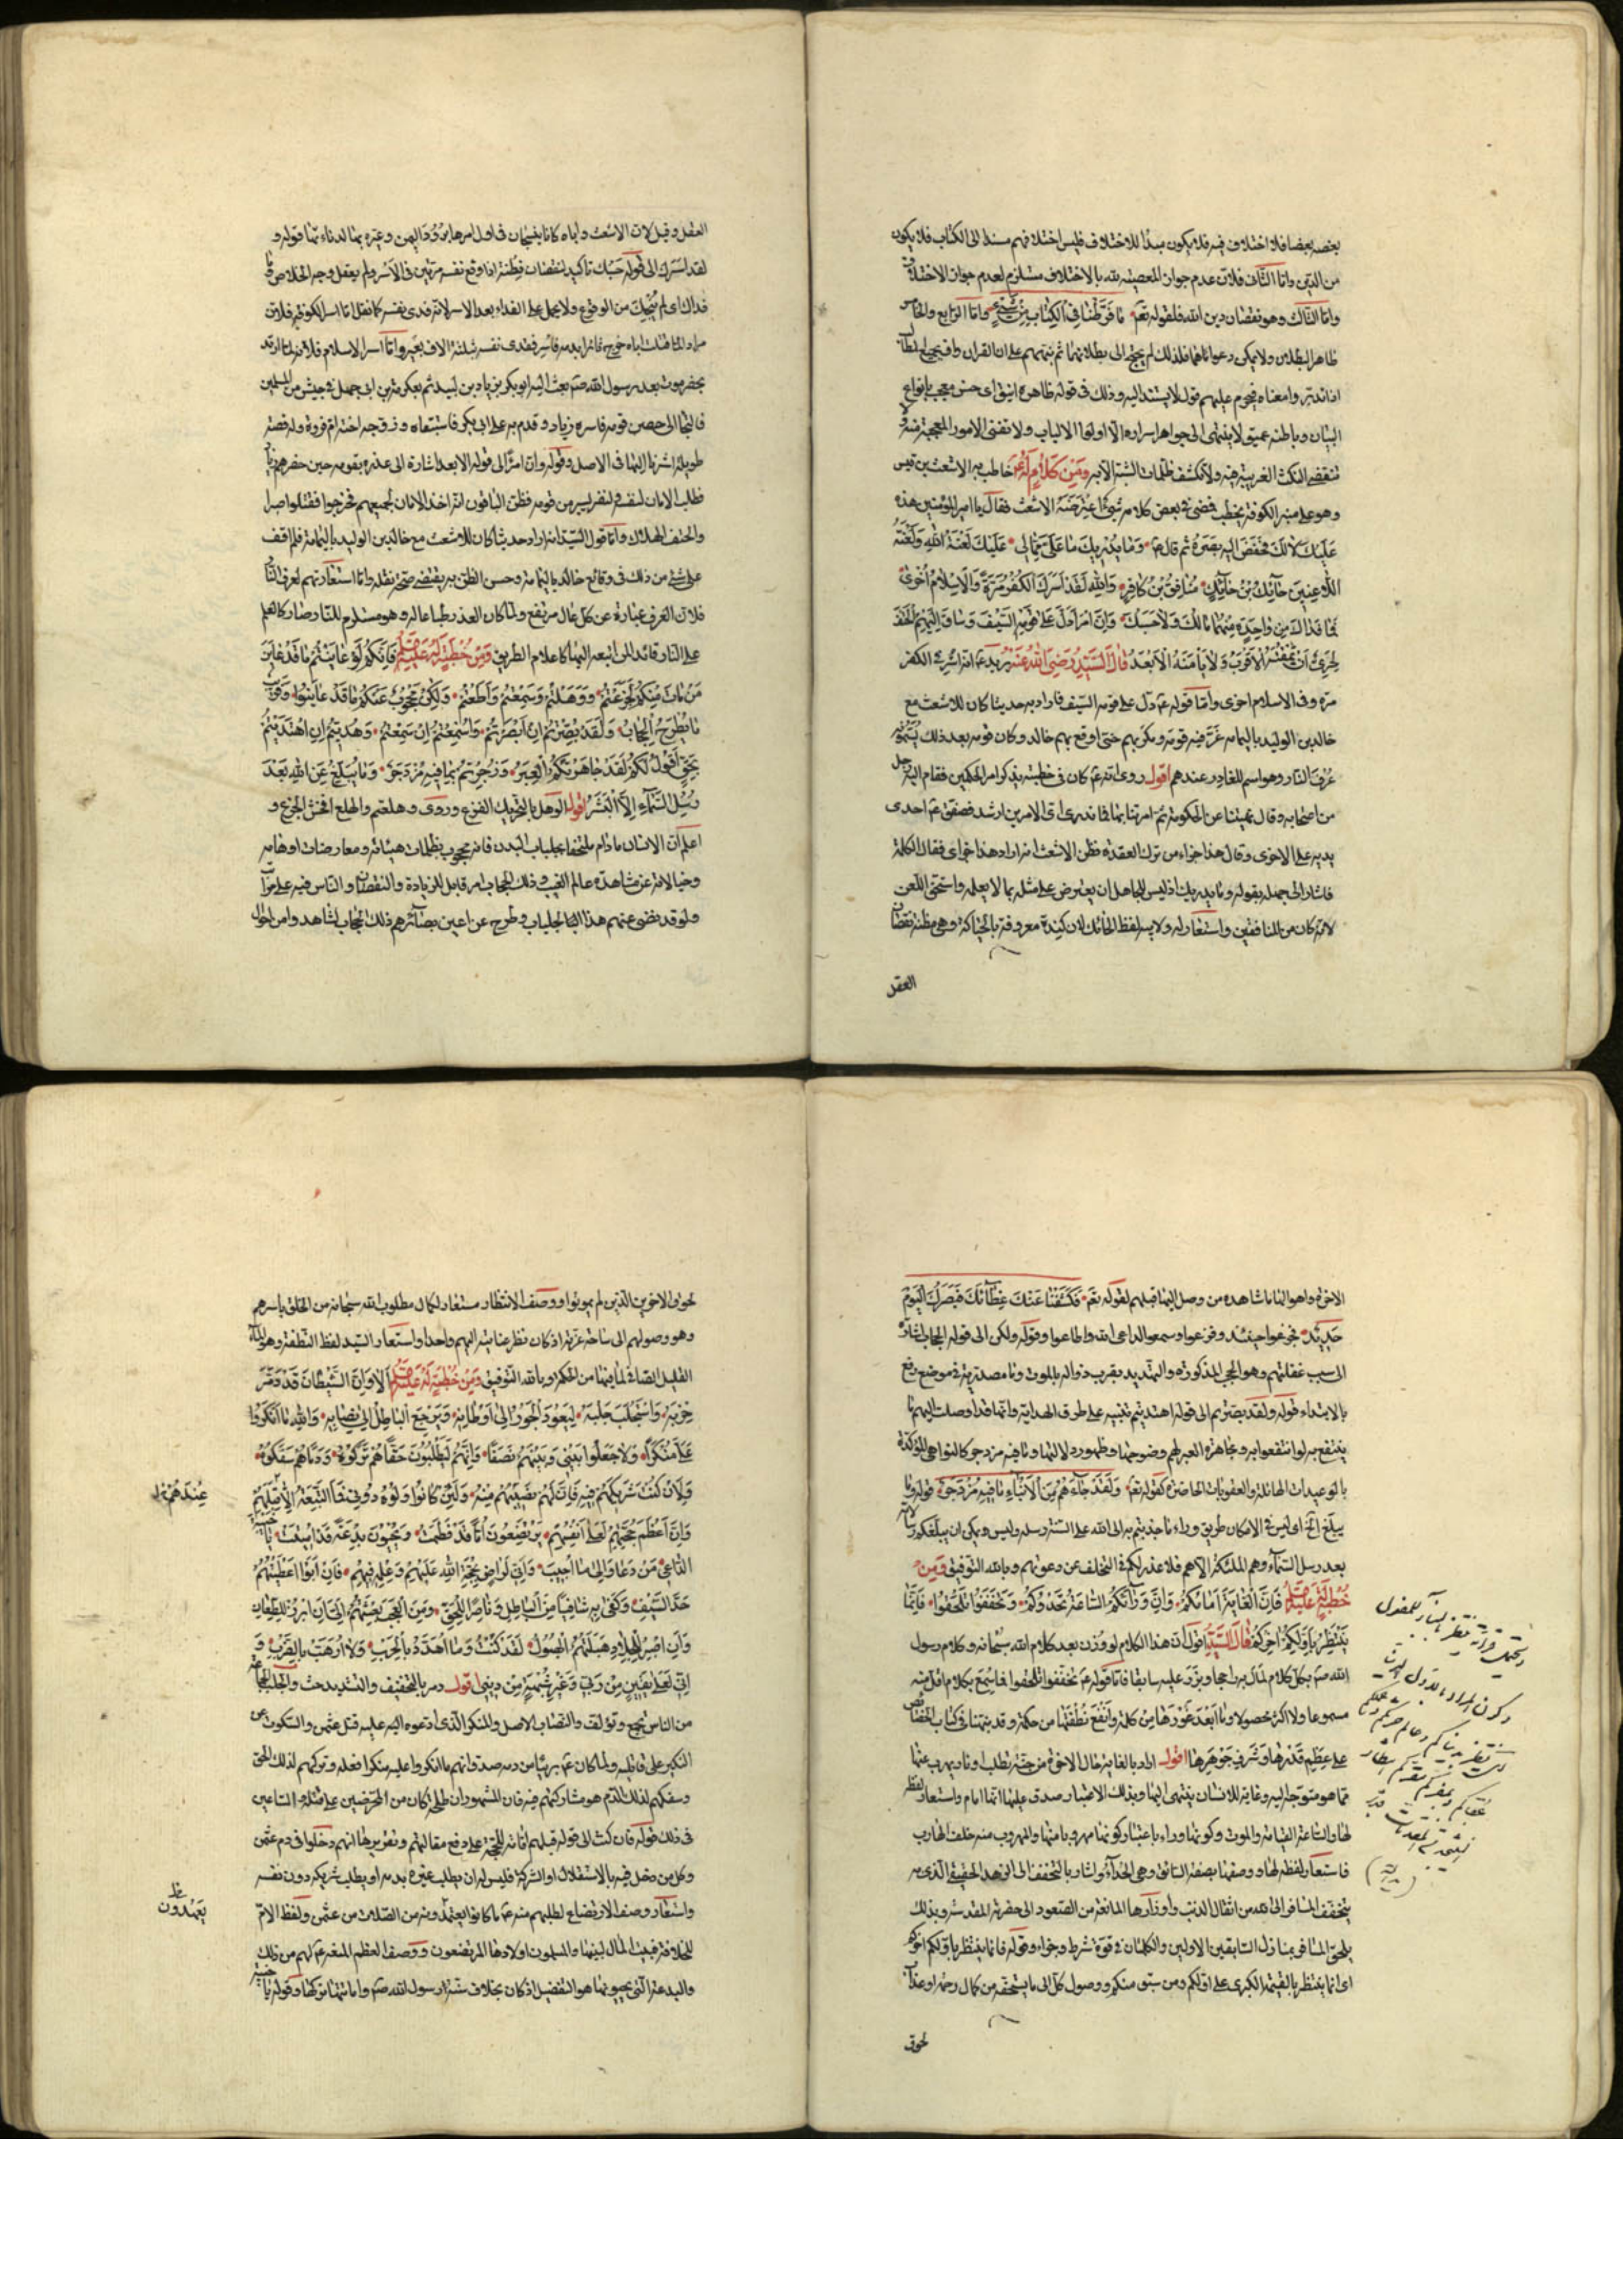 بعضه بعضا فلا اختلاف فيه فلا يكون مبدأ للاختلاف فليس اختلافهم مستندا الى الكتاب فلا يكون
من الدين واما الثانى فلان عدم جوان المعصية لله بالاختلاف مستلزم لعدم جوان الاختلاف
واما الثالث وهو نقصان دين الله فلقوله تعم ما فرطنا فى الكتاب من شىء واما الرابع والخامس
ظاهر البطلان ولا يمكن دعواناهما فلذلك لم يحتج الى بطلانهما ثم نبههم على ان القران واف بجميع المطالب
اذا تدبروا معناه فحرم عليهم قول لا يستند اليه وذلك فى قوله ظاهره انيق اى حسن معجب بانواع
البيان وباطنه عميق لا ينتهى الى جواهر اسراره الا اولوا الالباب ولا تفنى الامور المعجبة منه ولا
تنقضى النكت الغريبة فيه ولا تكشف ظلمات الشبه الا به ومن كلام له عم خاطب به الاشعث بن قيس
وهو على منبر الكوفة يخطب فمضى فى بعض كلامه شىء اعترضه الاشعث فقال يا امير المؤمنين هذه
عليك لا لك فخفض اليه بصره ثم قال عم وما يدريك ما على مما لى عليك لعنة الله ولعنة
اللاعنين حائك بن حائك منافق بن كافر والله لقد اسرك الكفر مرة والاسلام اخرى
فما فداك من واحدة منهما مالك ولا حسبك وان امرأ دل على قومه السيف وساق اليهم الحتف
لحرى ان يمقته الاقرب ولا يأمنه الابعد قال السيد رضى الله عنه يريد عم انه اسر فى الكفر
مرة وفى الاسلام اخرى واما قوله عم دل على قومه السيف فاراد به حديثا كان للاشعث مع
خالد بن الوليد باليمامة غر فيه قومه ومكر بهم حتى اوقع بهم خالد وكان قومه بعد ذلك يسمونه
عرف النار وهو اسم للغادر عندهم اقول روى انه عم كان فى خطبته يذكر امر الحكمين فقام اليه رجل
من اصحابه وقال نهيتنا عن الحكومة ثم امرتنا بها فما ندرى اى الامرين ارشد فصفق عم احدى
يديه على الاخرى وقال هذا جزاء من ترك العقدة فظن الاشعث انه اراد هذا جزاى فقال الكلمة
فاشار الى جهله بقوله وما يدريك اذ ليس للجاهل ان يعترض على مثله بما لا يعلم واستحق اللعن
لانه كان من المنافقين واستعار له ولابيه لفظ الحائك لان كندة معروفة بالحياكة وهى مظنة نقصان
العقل
العقل وقيل لان الاشعث واباه كانا ينسجان فى اول امرهما برود اليمن وعيره بهما لدناءتهما قوله و
لقد اسرك الى قوله حسبك تأكيد لنقصان فطنته اذا وقع نفسه مرتين فى الاسر ولم يعقل وجه الخلاص وما
فداك اى لم ينجك من الوقوع ولا يحمل على الفداء بعد الاسر لانه فدى نفسه كما نقل اما اسر الكفر فيه فلان
مراد لما قتلت اباه خرج ثائرا بدمه فاسر ففدى نفسه بثلثة الاف بعير واما اسر الاسلام فلانه لما ارتد
بحضرموت بعد رسول الله صم بعث اليه ابو بكر بن زياد بن لبيد ثم بعكرمة بن ابى جهل فى جيش من المسلمين
فالتجا الى حصن قومه فاسره زياد وقدم به على ابى بكر فاستبقاه وزوجه اخته ام فروة وله قصة
طويلة اشرنا اليها فى الاصل وقوله وان امرأ الى قوله الابعد اشارة الى غدره بقومه حين حضرهم زياد
فطلب الامان لنفسه ولنفر يسير من قومه فظن الباقون انه اخذ الامان لجميعهم فخرجوا فقتلوا صبرا
والحتف الهلاك واما قول السيد انه اراد حديثا كان للاشعث مع خالد بن الوليد باليمامة فلم اقف
على شىء من ذلك فى وقائع خالد باليمامة وحسن الظن به يقتضى صحة نقله واما استعارتهم لعرف النار
فلان العرف عبارة عن كل عال مرتفع ولما كان الغدر طباعا له وهو مستلزم للنار صار كالعلم
على النار قائدا لمن اتبعه اليها كاعلام الطريق ومن خطبة له عليه السلم فانكم لو عاينتم ما قد عاين
من مات منكم لجزعتم ووهلتم وسمعتم واطعتم ولكن محجوب عنكم ما قد عاينوا وقريب
ما يطرح الحجاب ولقد بصرتم ان ابصرتم واسمعتم ان سمعتم وهديتم ان اهتديتم
بحق اقول لكم لقد جاهرتكم العبر وزجرتم بما فيه مزدجر وما يبلغ عن الله بعد
رسل السماء الا البشر اقول الوهل بالتحريك الفزع وروى وهلعتم والهلع افحش الجزع و
اعلم ان الانسان ما دام ملتحفا بجلباب البدن فانه محجوب بظلمات هيئاته ومعارضات اوهامه
وخيالاته عن مشاهدة عالم الغيب وذلك الحجاب امر قابل للزيادة والنقصان والناس فيه على مراتب
ولو قد نضى عنهم هذا الجلباب وطرح عن اعين بصائرهم ذلك الحجاب لشاهدوا من احوال
الاخرة واهوالها ما شاهده من وصل اليها قبلهم لقوله تعم فكشفنا عنك غطاءك فبصرك اليوم
حديد فجزعوا حينئذ وفزعوا وسمعوا لداعى الله واطاعوا وقوله ولكن الى قوله الحجاب اشارة
الى سبب غفلتهم وهو الحجب المذكورة والتهديد بقرب زواله بالموت وما مصدرية فى موضع رفع
بالابتداء قوله ولقد بصرتم الى قوله اهتديتم تنبيه على طرق الهداية وانها قد اوصلت اليهم ما
ينتفع به لو انتفعوا به ومجاهرة العبر لهم وضوحها وظهور دلالتها وما فيه مزدجر كالنواهى المؤكدة
بالوعيدات الهائلة والعقوبات الحاضرة كقوله تعم ولقد جاءهم من الانباء ما فيه مزدجر قوله وما
يبلغ الخ اى ليس فى الامكان طريق وراء ما جذبتم به الى الله على السنة رسله وليس ويمكن ان يبلغكم رسالاته
بعد رسل السماء وهم الملئكة الا هم فلا عذر لكم فى التخلف عن دعوتهم وبالله التوفيق ومن
خطبة له عليه السلم فان الغاية امامكم وان ورائكم الساعة تحدوكم تخففوا تلحقوا فانما
ينتظر باولكم اخركم قال السيد اقول ان هذا الكلام لو وزن بعد كلام الله سبحانه وكلام رسول
الله صم بكل كلام لمال به راجحا وبرز عليه سابقا فاما قوله عم تخففوا تلحقوا فما سمع كلام اقل منه
مسموعا ولا اكثر محصولا وما ابعد غورها من كلمة وانقع نطفتها من حكمة وقد نبهنا فى كتاب الخصائص
على عظم قدرها وشرف جوهرها اقول اراد بالغاية حال الاخرة من جنة يطلب او نار يهرب عنها
مما هو متوجه اليه وغاية للانسان ينتهى اليها وبذلك الاعتبار صدق عليها انها امام واستعار لفظ
لها والساعة القيامة والموت وكونها وراء باعتبار كونها مهروبا منها والمهروب منه خلف الهارب
فاستعار لفظه لها ووصفها بصفة السائق وهى الحداء واشار بالتخفف الى الزهد الحقيقى الذى به
يتخفف المسافر الى الله من اثقال الدنيا واوزارها المانعة من الصعود الى حضرته المقدسة وبذلك
يلحق المسافر منازل السابقين الاولين والكلمتان فى قوة شرط وجزاء وقوله فانما ينتظر باولكم اخركم
اى انما ينتظر بالقيمة الكبرى على اولكم ومن سبق منكم ووصول كل الى ما يستحقه من كمال رحمة او عذاب
لحوق
لحوق الاخرين الذين لم يموتوا ووصف الانتظار مستعار لكمال مطلوب الله سبحانه من الخلق باسرهم
وهو وصولهم الى ساحة عزته اذ كان نظر عنايته اليهم واحدا واستعار السيد لفظ النطفة وهو الماء
القليل الصافى لما فيها من الحكمة وبالله التوفيق ومن خطبة له عليه السلم الا وان الشيطان قد ذمر
حزبه واستجلب جلبه ليعود الجور الى اوطانه ويرجع الباطل الى نصابه والله ما انكروا
على منكرا ولا جعلوا بينى وبينهم نصفا وانهم ليطلبون حقا هم تركوه ودما هم سفكوه
فلان كنت شريكهم فيه فان لهم نصيبهم منه ولئن كانوا ولوه دونى فما التبعة الا قبلهم
عندهم
وان اعظم حجتهم لعلى انفسهم يرتضعون اما قد فطمت ويحيون بدعة قد اميتت يا خيبة
الداعى من دعا والى ما اجيب وانى لراض بحجة الله عليهم وعلمه فيهم فان ابوا اعطيتهم
حد السيف وكفى به شافيا من الباطل وناصرا للحق ومن العجب بعثتهم الى ان ابرز للطعان
وان اصبر للجلاد هبلتهم الهبول لقد كنت وما اهدد بالحرب ولا ارهب بالضرب و
انى لعلى يقين من ربى وغير شبهة من دينى اقول ذمر بالتخفيف والتشديد حث والجلب الجماعة
من الناس تجمع وتؤلف والنصاب الاصل والمنكر الذى ادعوه اليه عليه قتل عثمن والسكوت عن
النكير على قاتليه ولما كان عم بريئا من دمه صدق انهم ما انكروا عليه منكرا فعله وتركهم لذلك الحق
وسفكهم لذلك الدم هو مشاركتهم فيه فان المشهور ان طلحة كان من المحرضين على قتله والساعين
فى ذلك قوله فان كنت الى قوله قبلهم اقامة للحجة على دفع مقالتهم وتقريرها انهم دخلوا فى دم عثمن
وكل من دخل فيه بالاستقلال او الشركة فليس له ان يطلب غيره بدمه او يطلب شريكه دون نفسه
واستعار وصف الارتضاع لطلبهم منه عم ما كانوا يعتمدونه من الصلات من عثمن ولفظ الام
يعتدون
للخلافة فبيت المال لبنها والمسلمون اولادها المرتضعون ووصف الفطم لمنعه عم لهم من ذلك
والبدعة التى يحيونها هو التفضيل اذ كان بخلاف سنة رسول الله صم واماتتها تركها وقوله يا خيبة